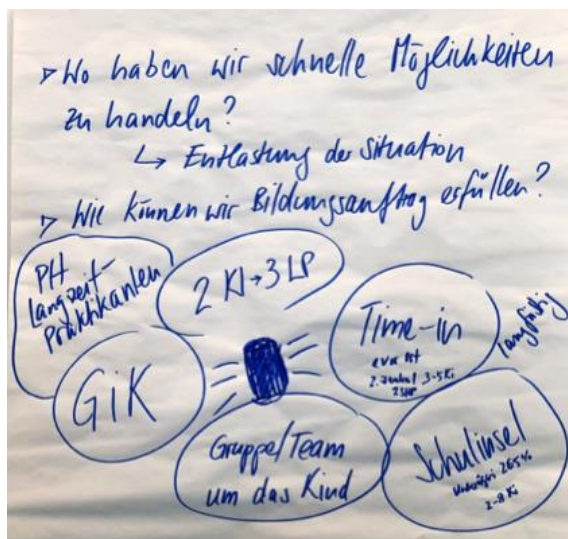 ▷ Wo haben wir schnelle Möglichkeiten
zu handeln?
↳ Entlastung der Situation
▷ Wie können wir Bildungsauftrag erfüllen?
PH
Langzeit-
Praktikanten
2 Kl → 3 LP
Time-in
2. 3-5 Ki
langfristig
GiK
Gruppe/Team
um das Kind
Schulinsel
265%
2-8 Ki